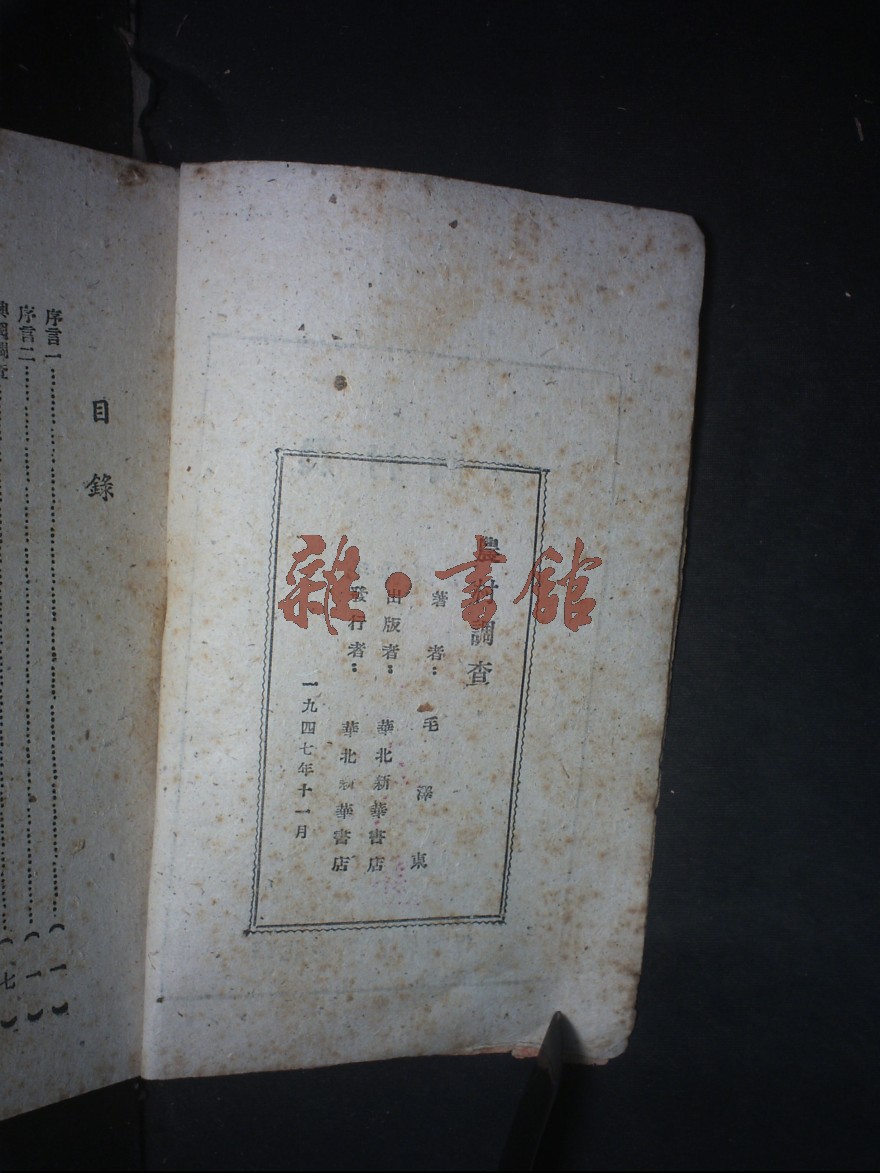 農村調查
著者：毛澤東
出版者：華北新華書店
發行者：華北新華書店
一九四七年十一月
目錄
序言一（一）
序言二（一）
興國調查（七）
雜·書館